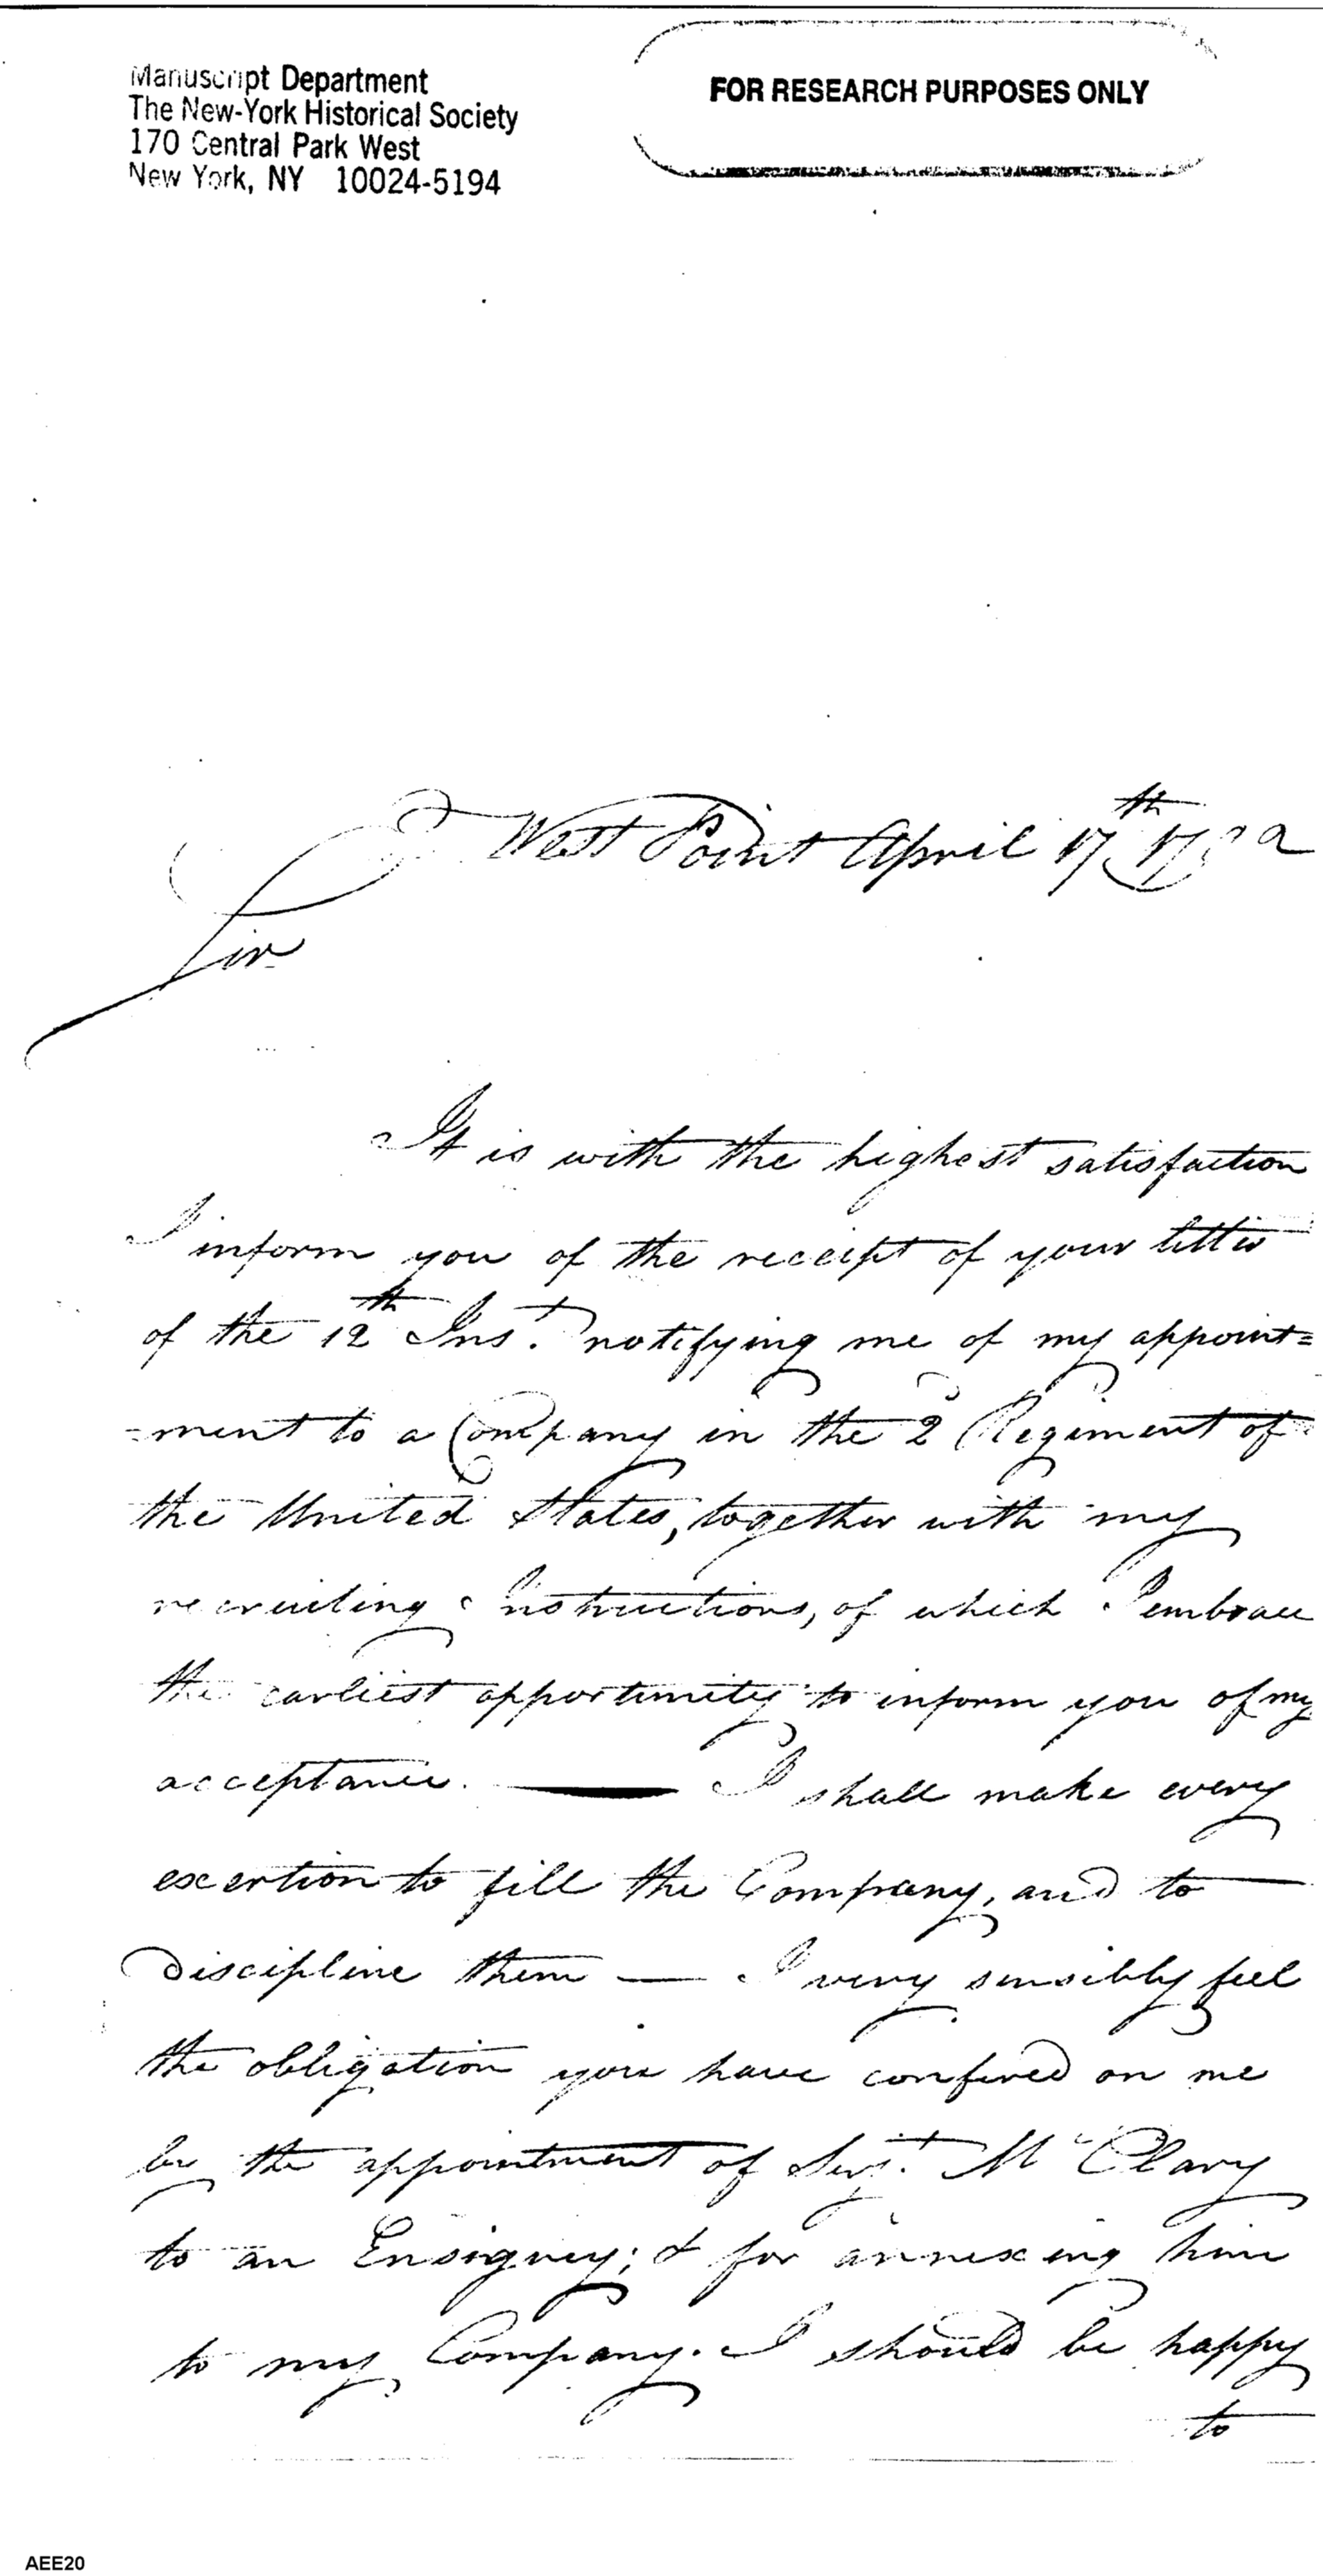 Manuscript Department
The New-York Historical Society
170 Central Park West
New York, NY 10024-5194
FOR RESEARCH PURPOSES ONLY
West Point April 17th
Sir
It is with the highest satisfaction
I inform you of the receipt of your letter
of the 12th Inst. notifying me of my appoint=
=ment to a Company in the 2d Regiment of
the United States, together with my
recruiting Instructions, of which I embrace
the earliest opportunity to inform you of my
acceptance. — I shall make every
exertion to fill the Company, and to —
discipline them — I very sensibly feel
the obligation you have confered on me
by the appointment of Serjt. McClary
to an Ensigncy; & for annexing him
to my Company. I should be happy
to
AEE20